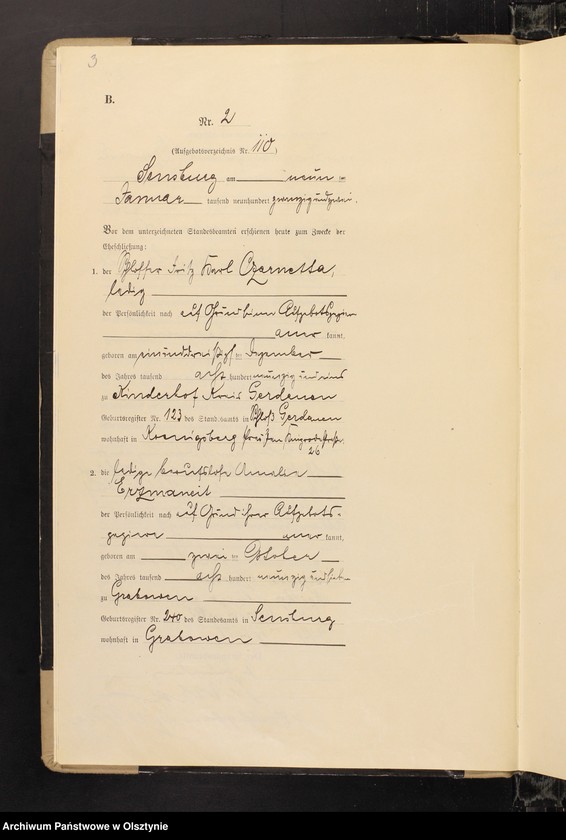 3
B.
Nr. 2
(Aufgebotsverzeichnis Nr. 110)
Sensburg am neun ten
Januar tausend neunhundert zwanzig und zwei.
Vor dem unterzeichneten Standesbeamten erschienen heute zum Zwecke der
Eheschließung:
1. der Schlosser Fritz Karl Czernetta,
ledig
der Persönlichkeit nach auf Grund seiner Aufgebotspapiere
aner kannt,
geboren am einunddreißigsten Dezember
des Jahres tausend acht hundert neunzig und
zu Kinderhof Kreis Gerdauen
Geburtsregister Nr. 123 des Standesamts in Schloß Gerdauen
wohnhaft in Koenigsberg Preußen
26
2. die ledige berufslose Amalie
Erzmaneit
der Persönlichkeit nach auf Grund ihrer Aufgebots-
papiere aner kannt,
geboren am zwei ten Oktober
des Jahres tausend acht hundert neunzig und
zu Grabowen
Geburtsregister Nr. 240 des Standesamts in Sensburg
wohnhaft in Grabowen
Archiwum Państwowe w Olsztynie